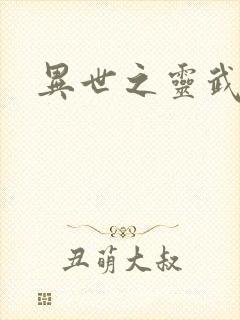 異世之靈武
丑萌大叔